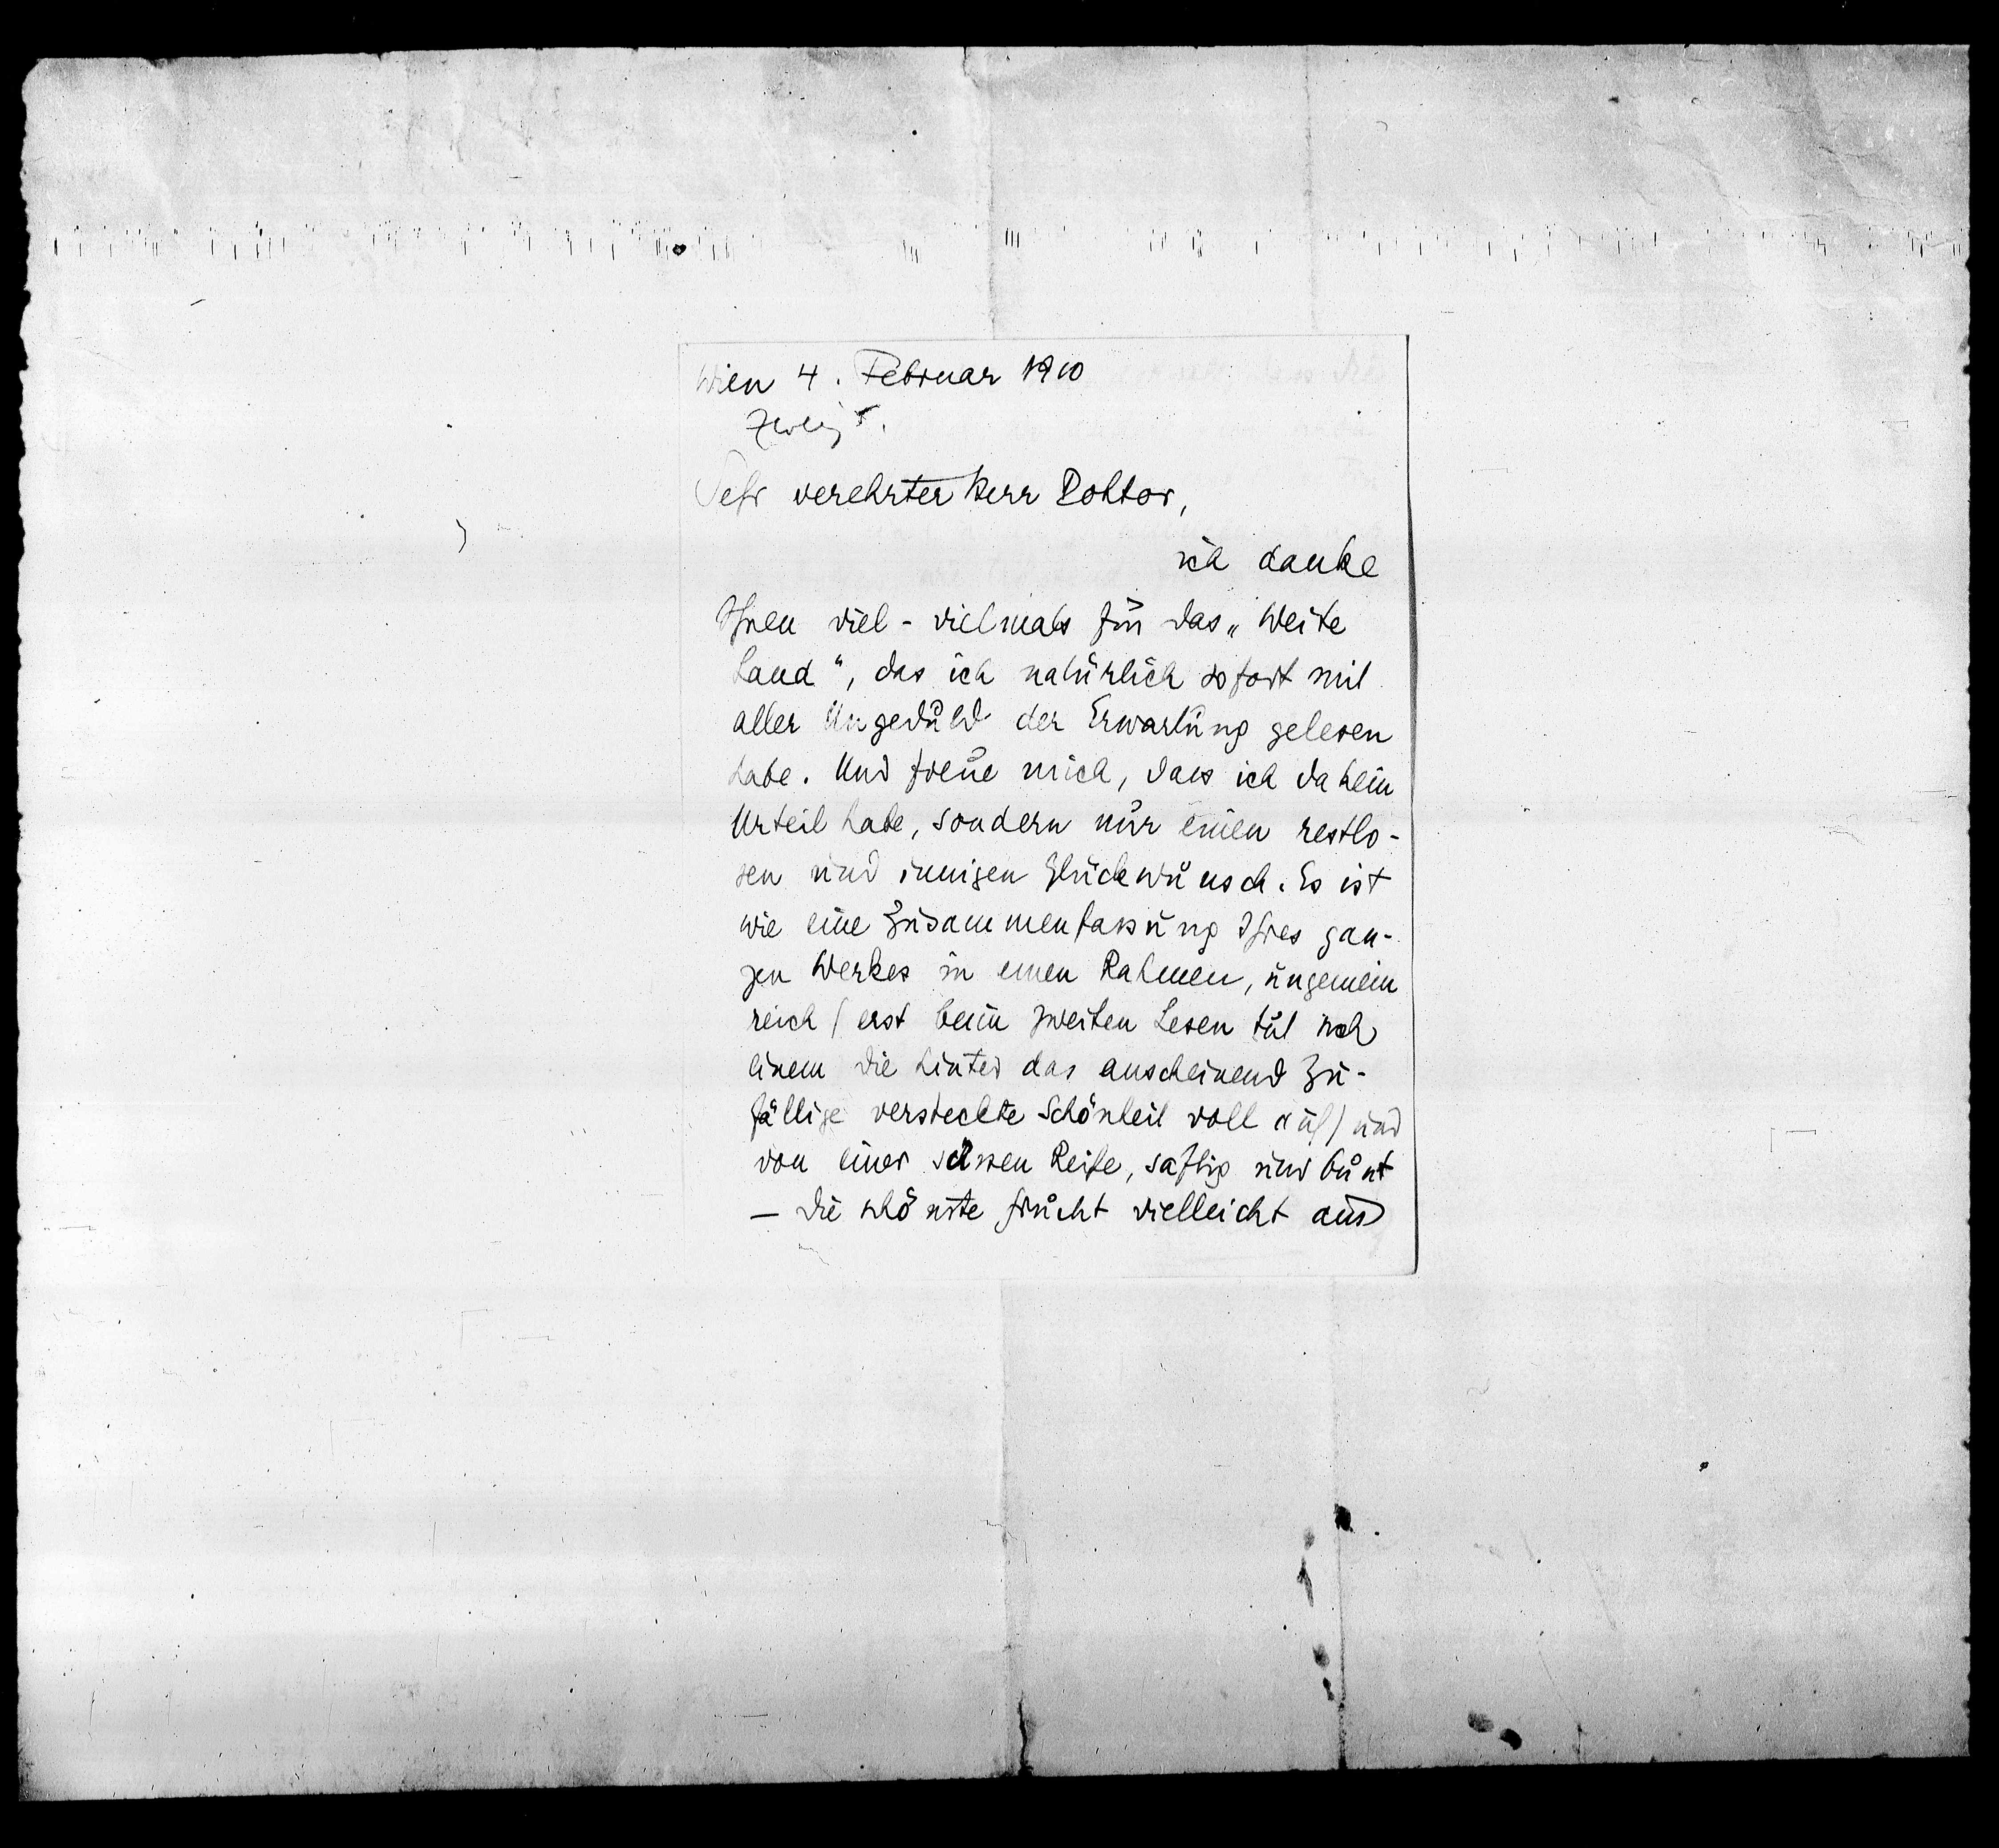 Wien 4. Februar 1910
Zweig
Sehr verehrter Herr Doktor,
ich danke
Ihnen viel - vielmals für das „Weite
Land“, das ich natürlich sofort mit
aller Ungeduld der Erwartung gelesen
habe. Und freue mich, dass ich da kein
Urteil habe, sondern nur einen restlo-
sen und innigen Glückwunsch. Es ist
wie eine Zusammenfassung Ihres gan-
zen Werkes in einen Rahmen, ungemein
reich (erst beim zweiten Lesen tut sich
einem die hinter das anscheinend Zu-
fällige versteckte Schönheit voll auf) und
von einer süssen Reife, saftig und bunt
— die schönste Frucht vielleicht aus